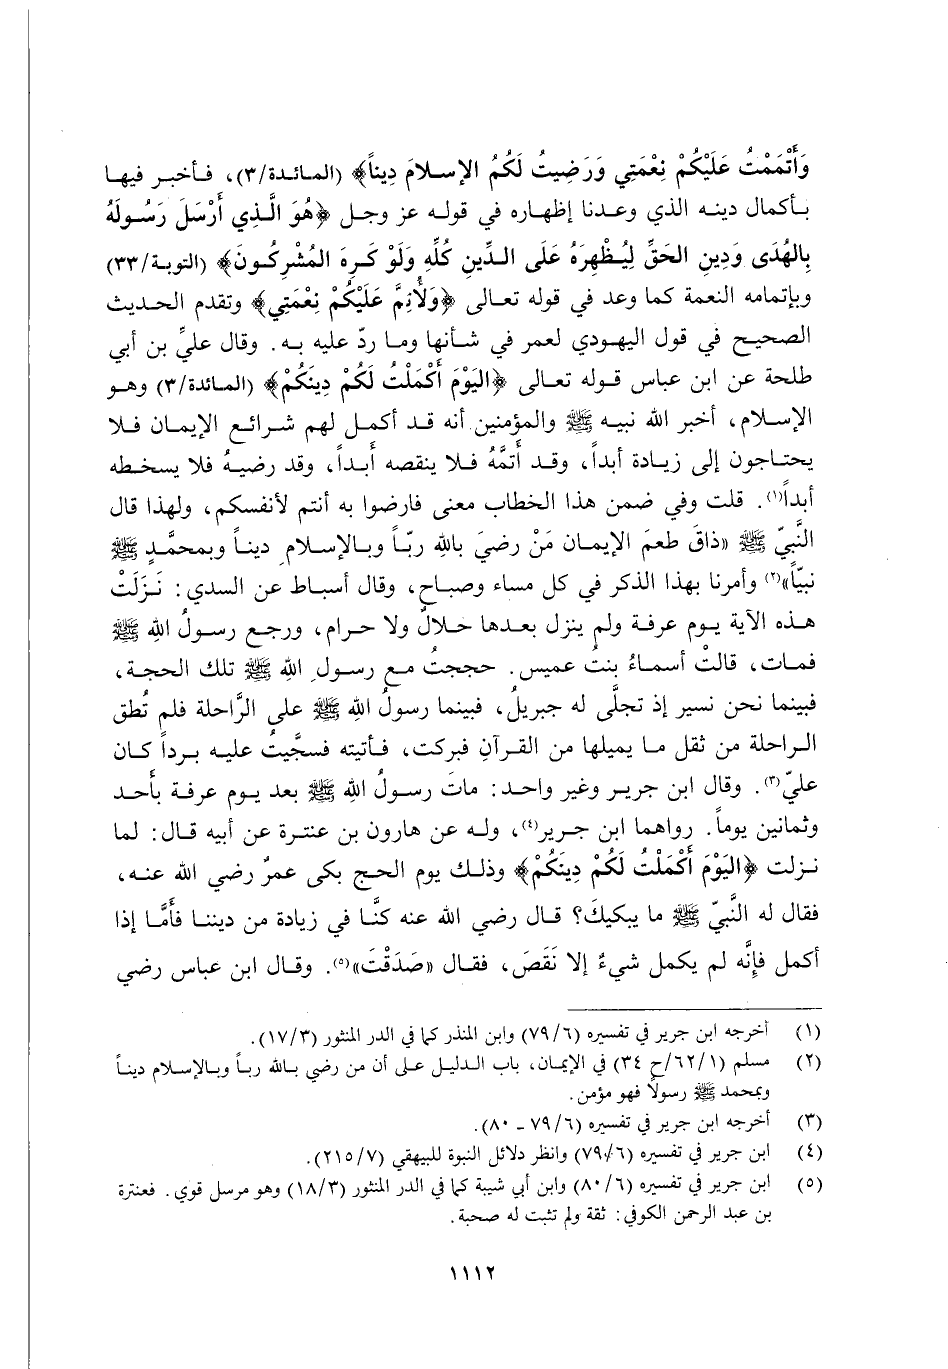 وَأَتْمَمْتُ عَلَيْكُمْ نِعْمَتِي وَرَضِيتُ لَكُمُ الإسـلامَ دِيناً﴾ (المـائدة/٣)، فـأخبـر فيهـا
بـأكمال دينـه الذي وعـدنا إظهـاره في قولـه عز وجـل ﴿هُوَ الَّـذِي أَرْسَلَ رَسُـولَهُ
بِالهُدَى وَدِينِ الحَقِّ لِيُظْهِرَهُ عَلَى الـدِّينِ كُلِّهِ وَلَوْ كَـرِهَ المُشْرِكُـونَ﴾ (التوبـة/٣٣)
وبـإتمامـه النعمـة كما وعـد في قوله تعـالى ﴿وَلُأتِمَّ عَلَيْكُمْ نِعْمَتِي﴾ وتقدم الحـديث
الصحيـح في قول اليهـودي لعمر في شـأنها ومـا ردّ عليه بـه. وقال عليِّ بن أبي
طلحة عن ابن عباس قـوله تعـالى ﴿اليَوْمَ أَكْمَلْتُ لَكُمْ دِينَكُمْ﴾ (المـائدة/٣) وهـو
الإسـلام، أخبر الله نبيـه ﷺ والمـؤمنين أنه قـد أكمـل لهم شـرائـع الإيمـان فـلا
يحتاجون إلى زيـادة أبداً، وقـد أَتمَّهُ فـلا ينقصه أبـداً، وقد رضيـهُ فلا يسخطه
أبداً(١). قلت وفي ضمن هذا الخطاب معنى فارضوا به أنتم لأنفسكم، ولهذا قال
النَّبيّ ﷺ «ذاقَ طعمَ الإيمـان مَنْ رضيَ بـاللهِ ربّـاً وبـالإسـلامِ دينـاً وبمحمَّـدٍ ﷺ
نبيّاً»(٢) وأمرنا بهذا الذكر في كل مساء وصباح، وقال أسباط عن السدي: نَـزَلَتْ
هـذه الآية يـوم عرفـة ولم ينزل بعـدها حـلالٌ ولا حـرام، ورجـع رسـولُ اللهِ ﷺ
فمـات، قالتْ أسمـاءُ بنتُ عميس. حججتُ مـع رسـولِ اللهِ ﷺ تلك الحجـة،
فبينما نحن نسير إذ تجلَّى له جبريلُ، فبينما رسولُ اللهِ ﷺ على الرَّاحلة فلم تُطق
الـراحلة من ثقل مـا يميلها من القـرآنِ فبركت، فـأتيته فسجَّيتُ عليـه بـرداً كـان
عليّ(٣). وقال ابن جريـر وغير واحـد: ماتَ رسـولُ اللهِ ﷺ بعد يـوم عرفـة بأحـد
وثمـانين يومـاً. رواهمـا ابن جـرير(٤)، ولـه عن هارون بن عنتـرة عن أبيـه قـال: لمـا
نـزلت ﴿اليَوْمَ أَكْمَلْتُ لَكُمْ دِينَكُمْ﴾ وذلـك يوم الحـج بكى عمرُ رضي الله عنـه،
فقال له النَّبيّ ﷺ ما يبكيكَ؟ قـال رضي الله عنه كنَّـا في زيادة من ديننـا فأمَّا إذا
أكمل فإنَّه لم يكمل شيءٌ إلا نَقَصَ، فقـال «صَدَقْتَ»(٥). وقـال ابن عباس رضي
(١) أخرجه ابن جرير في تفسيره (٧٩/٦) وابن المنذر كما في الدر المنثور (١٧/٣).
(٢) مسلم (٦٢/١/ح ٣٤) في الإيمـان، باب الدليـل على أن من رضي بـالله ربـاً وبـالإسلام دينـاً
وبمحمد ﷺ رسولاً فهو مؤمن.
(٣) أخرجه ابن جرير في تفسيره (٧٩/٦ - ٨٠).
(٤) ابن جرير في تفسيره (٧٩/٦) وانظر دلائل النبوة للبيهقي (٢١٥/٧).
(٥) ابن جرير في تفسيره (٨٠/٦) وابن أبي شيبة كما في الدر المنثور (١٨/٣) وهو مرسل قوي. فعنترة
بن عبد الرحمن الكوفي: ثقة ولم تثبت له صحبة.
١١١٢